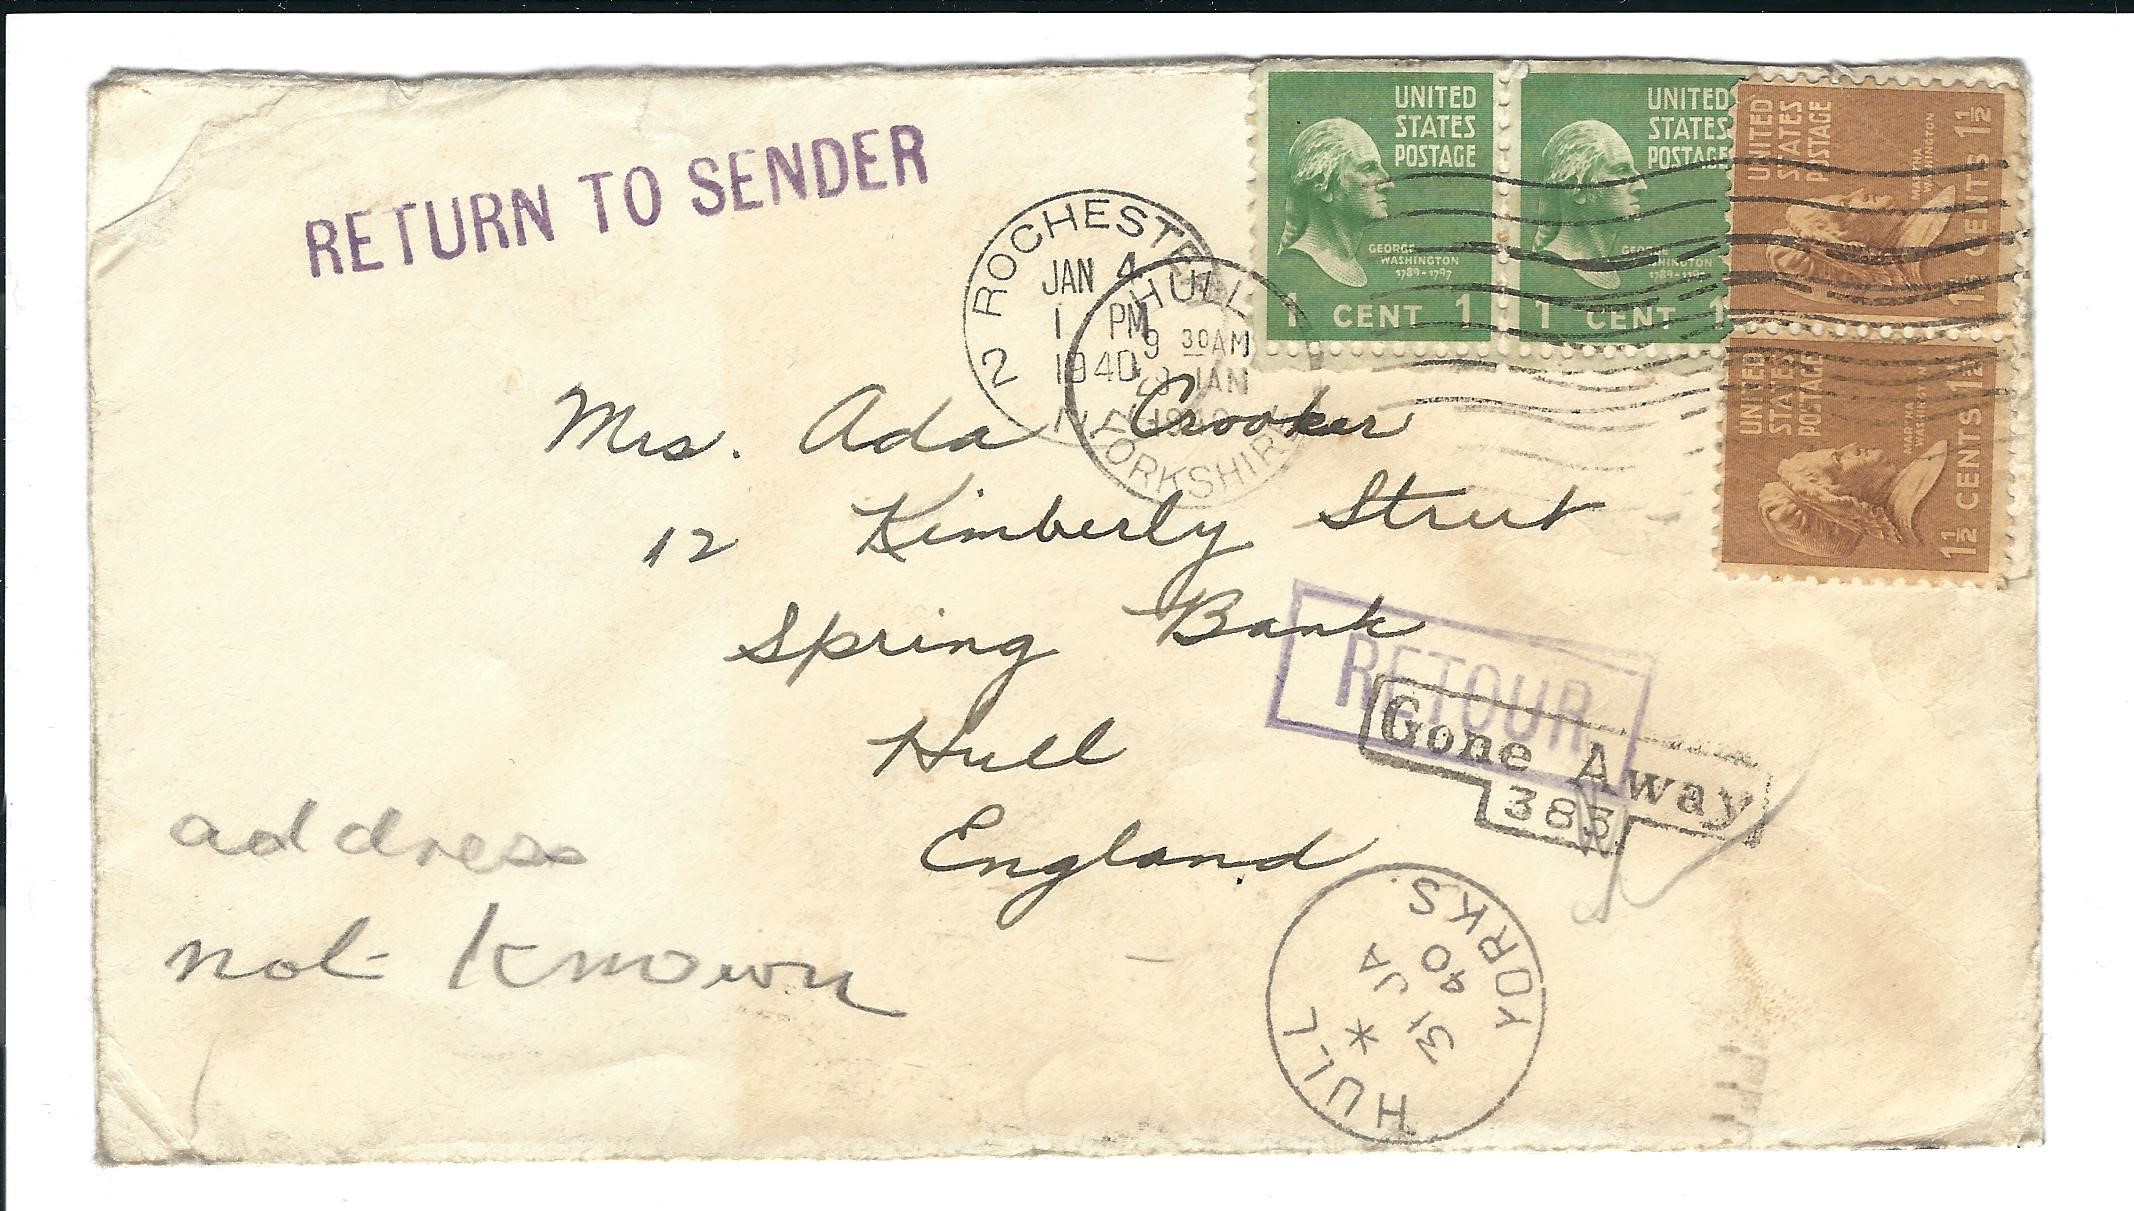 RETURN TO SENDER
UNITED
STATES
POSTAGE
GEORGE
WASHINGTON
1789-1797
1 CENT 1
UNITED
STATES
POSTAGE
GEORGE
WASHINGTON
1 CENT 1
UNITED
STATES
POSTAGE
MARTHA
WASHINGTON
1½ CENTS 1½
UNITED
STATES
POSTAGE
MARTHA
WASHINGTON
1½ CENTS 1½
ROCHESTER 2
JAN 4
1 PM
1940
HULL
9 30AM
JAN
1940
YORKSHIRE
Mrs. Ada Crooker
12 Kimberly Street
Spring Bank
Hull
England
RETOUR
Gone Away
383
address
not known
HULL
YORKS.
JA
31
40